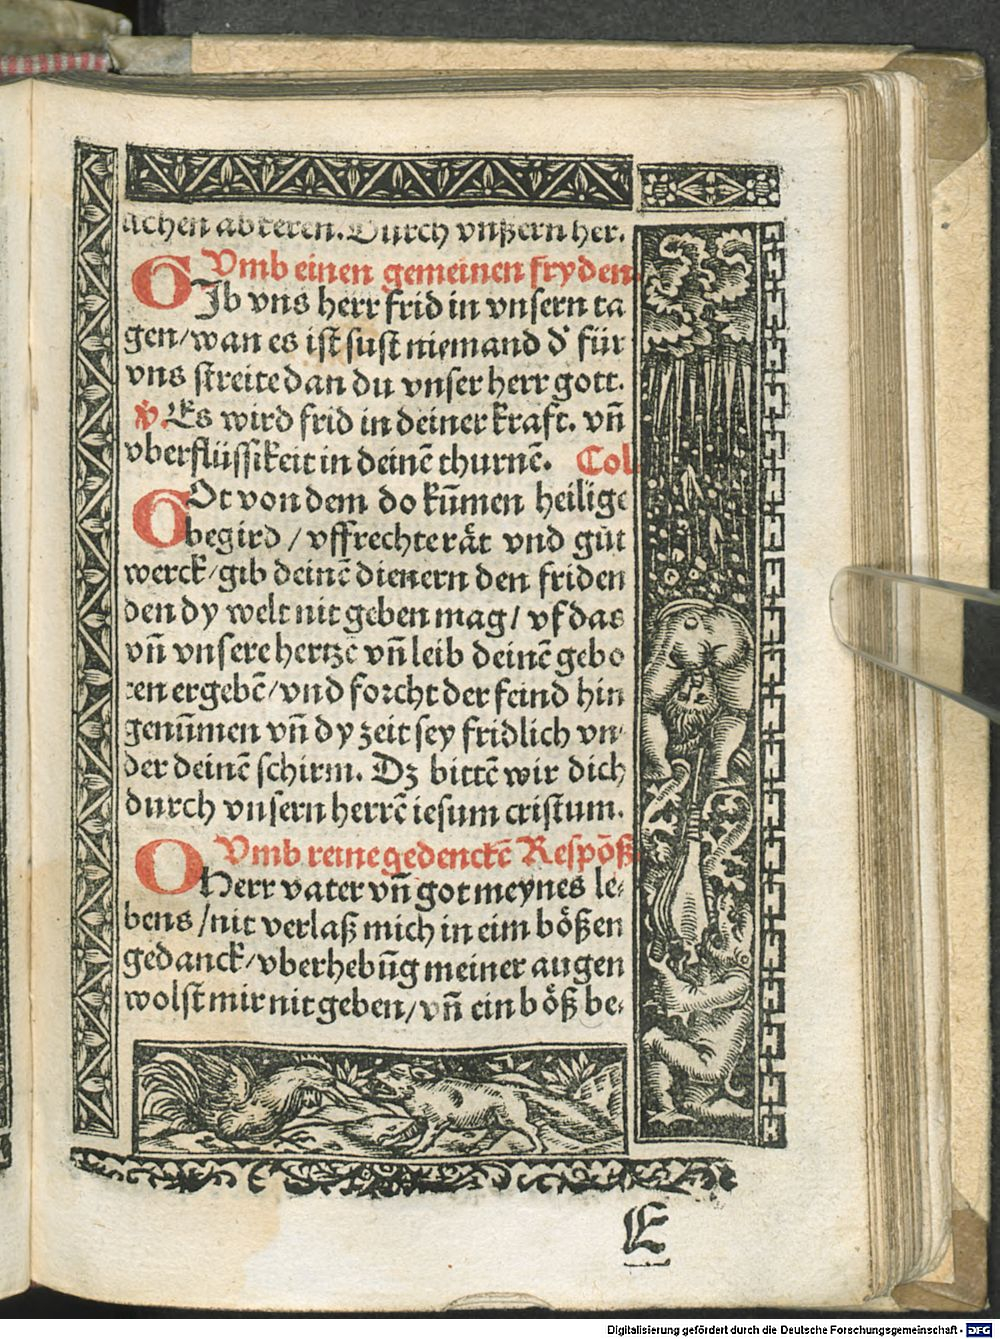 achen abkeren. Durch vnßern her.
Vmb einen gemeinen fryden
GIb vns herr frid in vnsern ta
gen/wan es ist sust niemand d' für
vns streite dan du vnser herr gott.
v̉. Es wird frid in deiner kraft. vn̄
vberflüssikeit in deinē thurnē. Col
GOt von dem do kūmen heilige
begird / vffrechte rät vnd gůt
werck/gib deinē dienern den friden
den dy welt nit geben mag/ vf das
vn̄ vnsere hertzē vn̄ leib deinē gebo
ten ergebē/vnd forcht der feind hin
genūmen vn̄ dy zeit sey fridlich vn⸗
der deinē schirm. Dz bittē wir dich
durch vnsern herrē iesum cristum.
Vmb reine gedenckē Respōß
O Herr vater vn̄ got meynes le⸗
bens /nit verlaß mich in eim bößen
gedanck/vberhebūg meiner augen
wolst mir nit geben/vn̄ ein böß be⸗
E
Digitalisierung gefördert durch die Deutsche Forschungsgemeinschaft - DFG